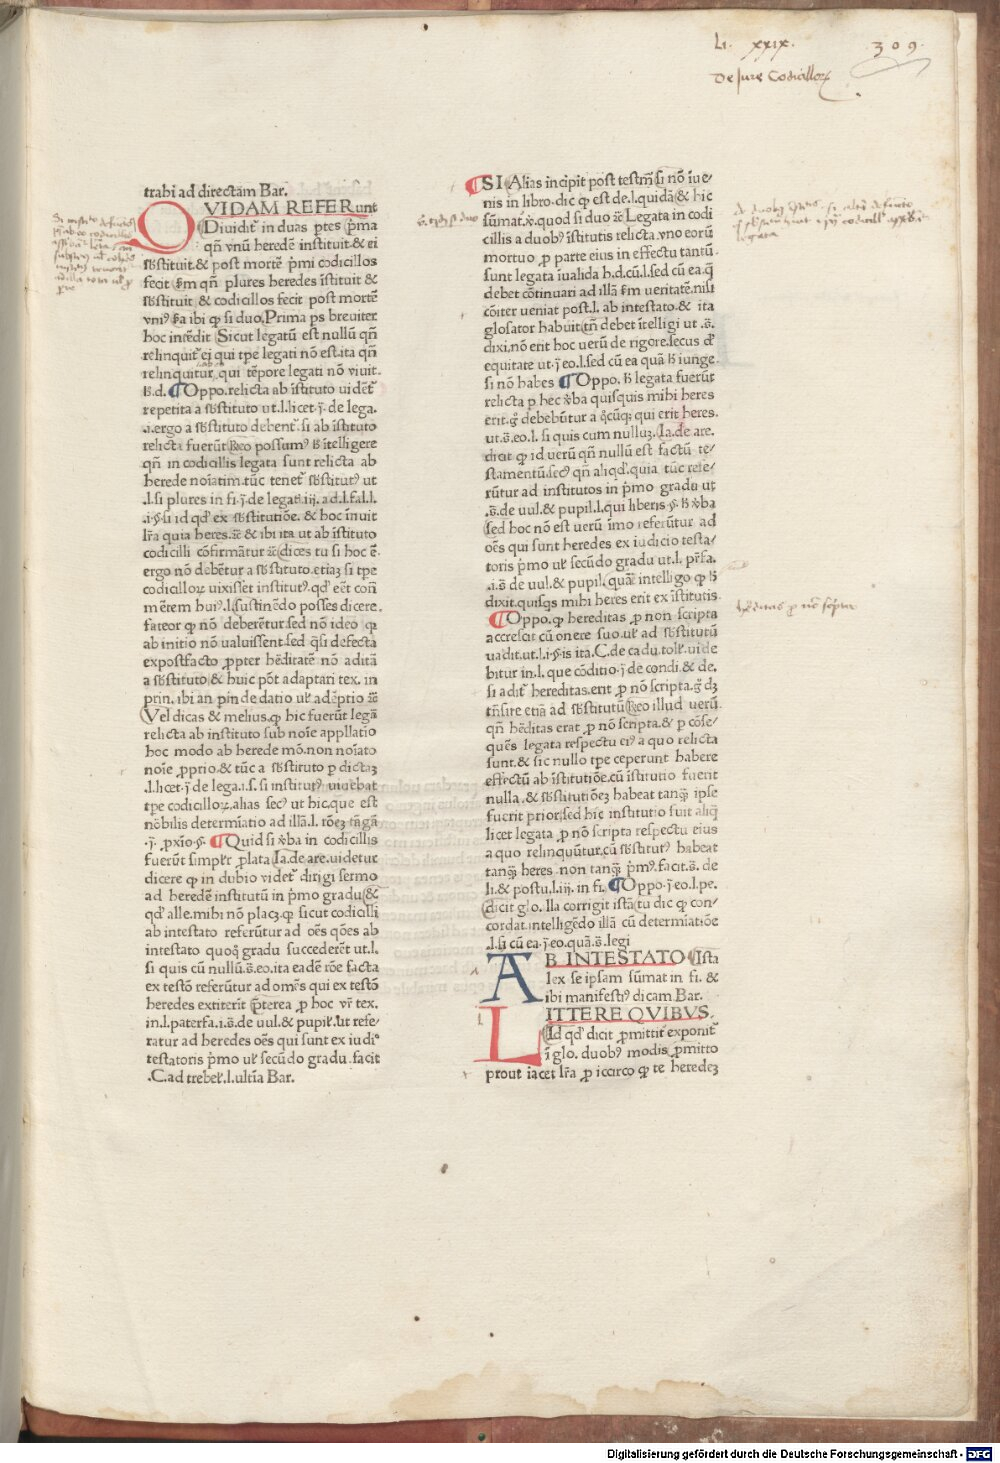 Li. xxix. 309.
De Jure Codicillorꝝ
trahi ad directam Bar.
QVIDAM REFERunt
Diuidit᷑ in duas ptes p̄ma
qñ vnū heredē instituit & ei
sƀstituit.& post mortē p̄mi codicillos
fecit s̄m qñ plures heredes īstituit &
sƀstituit & codicillos fecit post mortē
vniꝰ s̄a ibi ꝙ si duo, Prima ps breuiter
hoc intēdit Sicut legatū est nullū qñ
relinquit᷑ ei qui tpe legati nō est.ita qñ
relinquitur qui tēpore legati nō viuit.
ħ.d. ¶ Oppo.relicta ab īstituto uidet᷑
repetita a sƀstituto ut.l.licet.j.de lega.
.i.ergo a sƀstituto debent᷑.si ab īstituto
relicta fuerūt Rñeo possumꝰ ħ ītelligere
qñ in codicillis legata sunt relicta ab
herede noīatim.tūc tenet᷑ sƀstitutꝰ ut
.l.si plures in fi.j.de legat᷑.iij.ad.l.fal.l.
.i.§.si id qd' ex sƀstitutiōe.& hoc īnuit
lr̄a quia heres.⁊c̄ & ibi ita ut ab īstituto
codicilli cōfirmātur ⁊c̄ dices tu si hoc ē.
ergo nō debētur a sƀstituto.etiaꝫ si tpe
codicilloꝝ uixisset institutꝰ.qd' eēt cōn̄
mētem huiꝰ.l.sustinēdo posses dicere.
fateor ꝙ nō deberētur.sed nō ideo ꝙ
ab initio nō ualuissent.sed q̄si defecta
expostfacto ꝓpter hēditatē nō aditā
a sƀstituto & huic pōt adaptari tex.in
prin.ibi an pīn de datio uł adēptio ⁊c̄
Vel dicas & melius.ꝙ hic fuerūt legā
relicta ab instituto sub noīe appllatio
hoc modo ab herede mō.non noīato
noīe ꝓprio.& tūc a sƀstituto p dictaꝫ
.l.licet.j.de lega.i.s.si institutꝰ viuebat
tpe codicilloꝝ.alias secꝰ ut hic.que est
nōbilis determīatio ad illā.l. rōeꝫ tāgā
.j. ꝓxīo.§. ¶ Quid si v̄ba in codicillis
fuerūt simplr̄ ꝓlata Ia.de are.uidetur
dicere ꝙ in dubio videt᷑ dirigi sermo
ad heredē institutū in p̄mo gradu &
qd' alle.mihi nō placꝫ.ꝙ sicut codicilli
ab intestato referūtur ad oēs qōes ab
intestato quoqꝫ gradu succederēt ut.l.
si quis cū nullū.s̄.eo.ita eadē rōe facta
ex testō referūtur ad omēs qui ex testō
heredes extiterīt p̄terea ꝓ hoc vr̄ tex.
in.l.paterfa.i.s̄.de uul.& pupił.ut refe-
ratur ad heredes oēs qui sunt ex iudi⁰
testatoris p̄mo uł secūdo gradu.facit
.C.ad trebeł.l.ultīa Bar.
¶ SI Alias incipit post testm̄ si nō īue-
nis in libro.dic ꝙ est de.l.quidā & hic
sūmat᷑.v̄.quod si duo ⁊c̄ Legata in codi
cillis a duobꝰ īstitutis relicta.vno eorū
mortuo ꝓ parte eius in effectu tantū
sunt legata īualida h.d.cū.l.sed cū ea.ꝗ
debet cōtinuari ad illā s̄m ueritatē.nisi
cōiter ueniat post.l. ab intestato.& ita
glosator habuit tn̄ debet ītelligi ut .s̄.
dixi.nō erit hoc uerū de rigore.secus d'
equitate ut.j.eo.l.sed cū ea quā ħ iunge.
si nō habes ¶ Oppo. ħ legata fuerūt
relicta p hec v̄ba quisquis mihi heres
erit.g̊ debebūtur a q̊cūqꝫ qui erit heres.
ut.s̄.eo.l. si quis cum nulluꝫ. Ia.de are.
dicit ꝙ id uerū qñ nullū est factū te-
stamentū.secꝰ qñ aliqd'.quia tūc refe-
rūtur ad institutos in p̄mo gradu ut
.s̄.de uul.& pupil.l.qui liberis §.ħ v̄ba
sed hoc nō est uerū īmo referūtur ad
oēs qui sunt heredes ex iudicio testa-
toris p̄mo uł secūdo gradu ut.l. pr̄fa.
.i.s̄ de uul.& pupil. quar̄ intelligo ꝙ ħ
dixit.quisqs mihi heres erit ex īstitutis
¶ Oppo.ꝙ hereditas ꝓ non scripta
accrescit cū onere suo.uł ad sƀstitutū
uadit.ut.l.i.§.is ita.C.de cadu.toł.uide
bitur in.l. que cōditio.j.de condi.& de.
si adit᷑ hereditas.erit ꝓ nō scripta.g̊ dꝫ
trn̄sire etiā ad sƀstitutū Rñeo illud uerū.
qñ hēditas erat ꝓ nō scripta.& ꝑ cōse-
quēs legata respectu eiꝰ a quo relicta
sunt.& sic nullo tpe ceperunt habere
effectū ab īstitutiōe.cū īstitutio fuerit
nulla.& sƀstitutiōeꝫ habeat tanꝙ ipse
fuerit prior,sed hic institutio fuit aliꝗ
licet legata ꝓ nō scripta respectu eius
a quo relinquūtur.cū sƀstitutꝰ habeat
tanꝙ heres. non tanꝙ p̄mꝰ.facit.s̄. de
li.& postu.l.iij. in fi. ¶ Oppo.j.eo.l.pe.
dicit glo. illa corrigit istā tu dic ꝙ con-
cordat.intelligēdo illā cū determīatiōe
.l.si cū ea.j.eo.quā.s̄.legi
AB INTESTATO Ista
lex se ipsam sūmat in fi. &
ibi manifestiꝰ dicam Bar.
LITTERE QVIBVS.
Id qd' dicit ꝓmittit᷑ exponit᷑
ī glo. duobꝰ modis ꝓmitto
prout iacet lr̄a ꝓ iccirco ꝙ te heredeꝫ
Digitalisierung gefördert durch die Deutsche Forschungsgemeinschaft - DFG